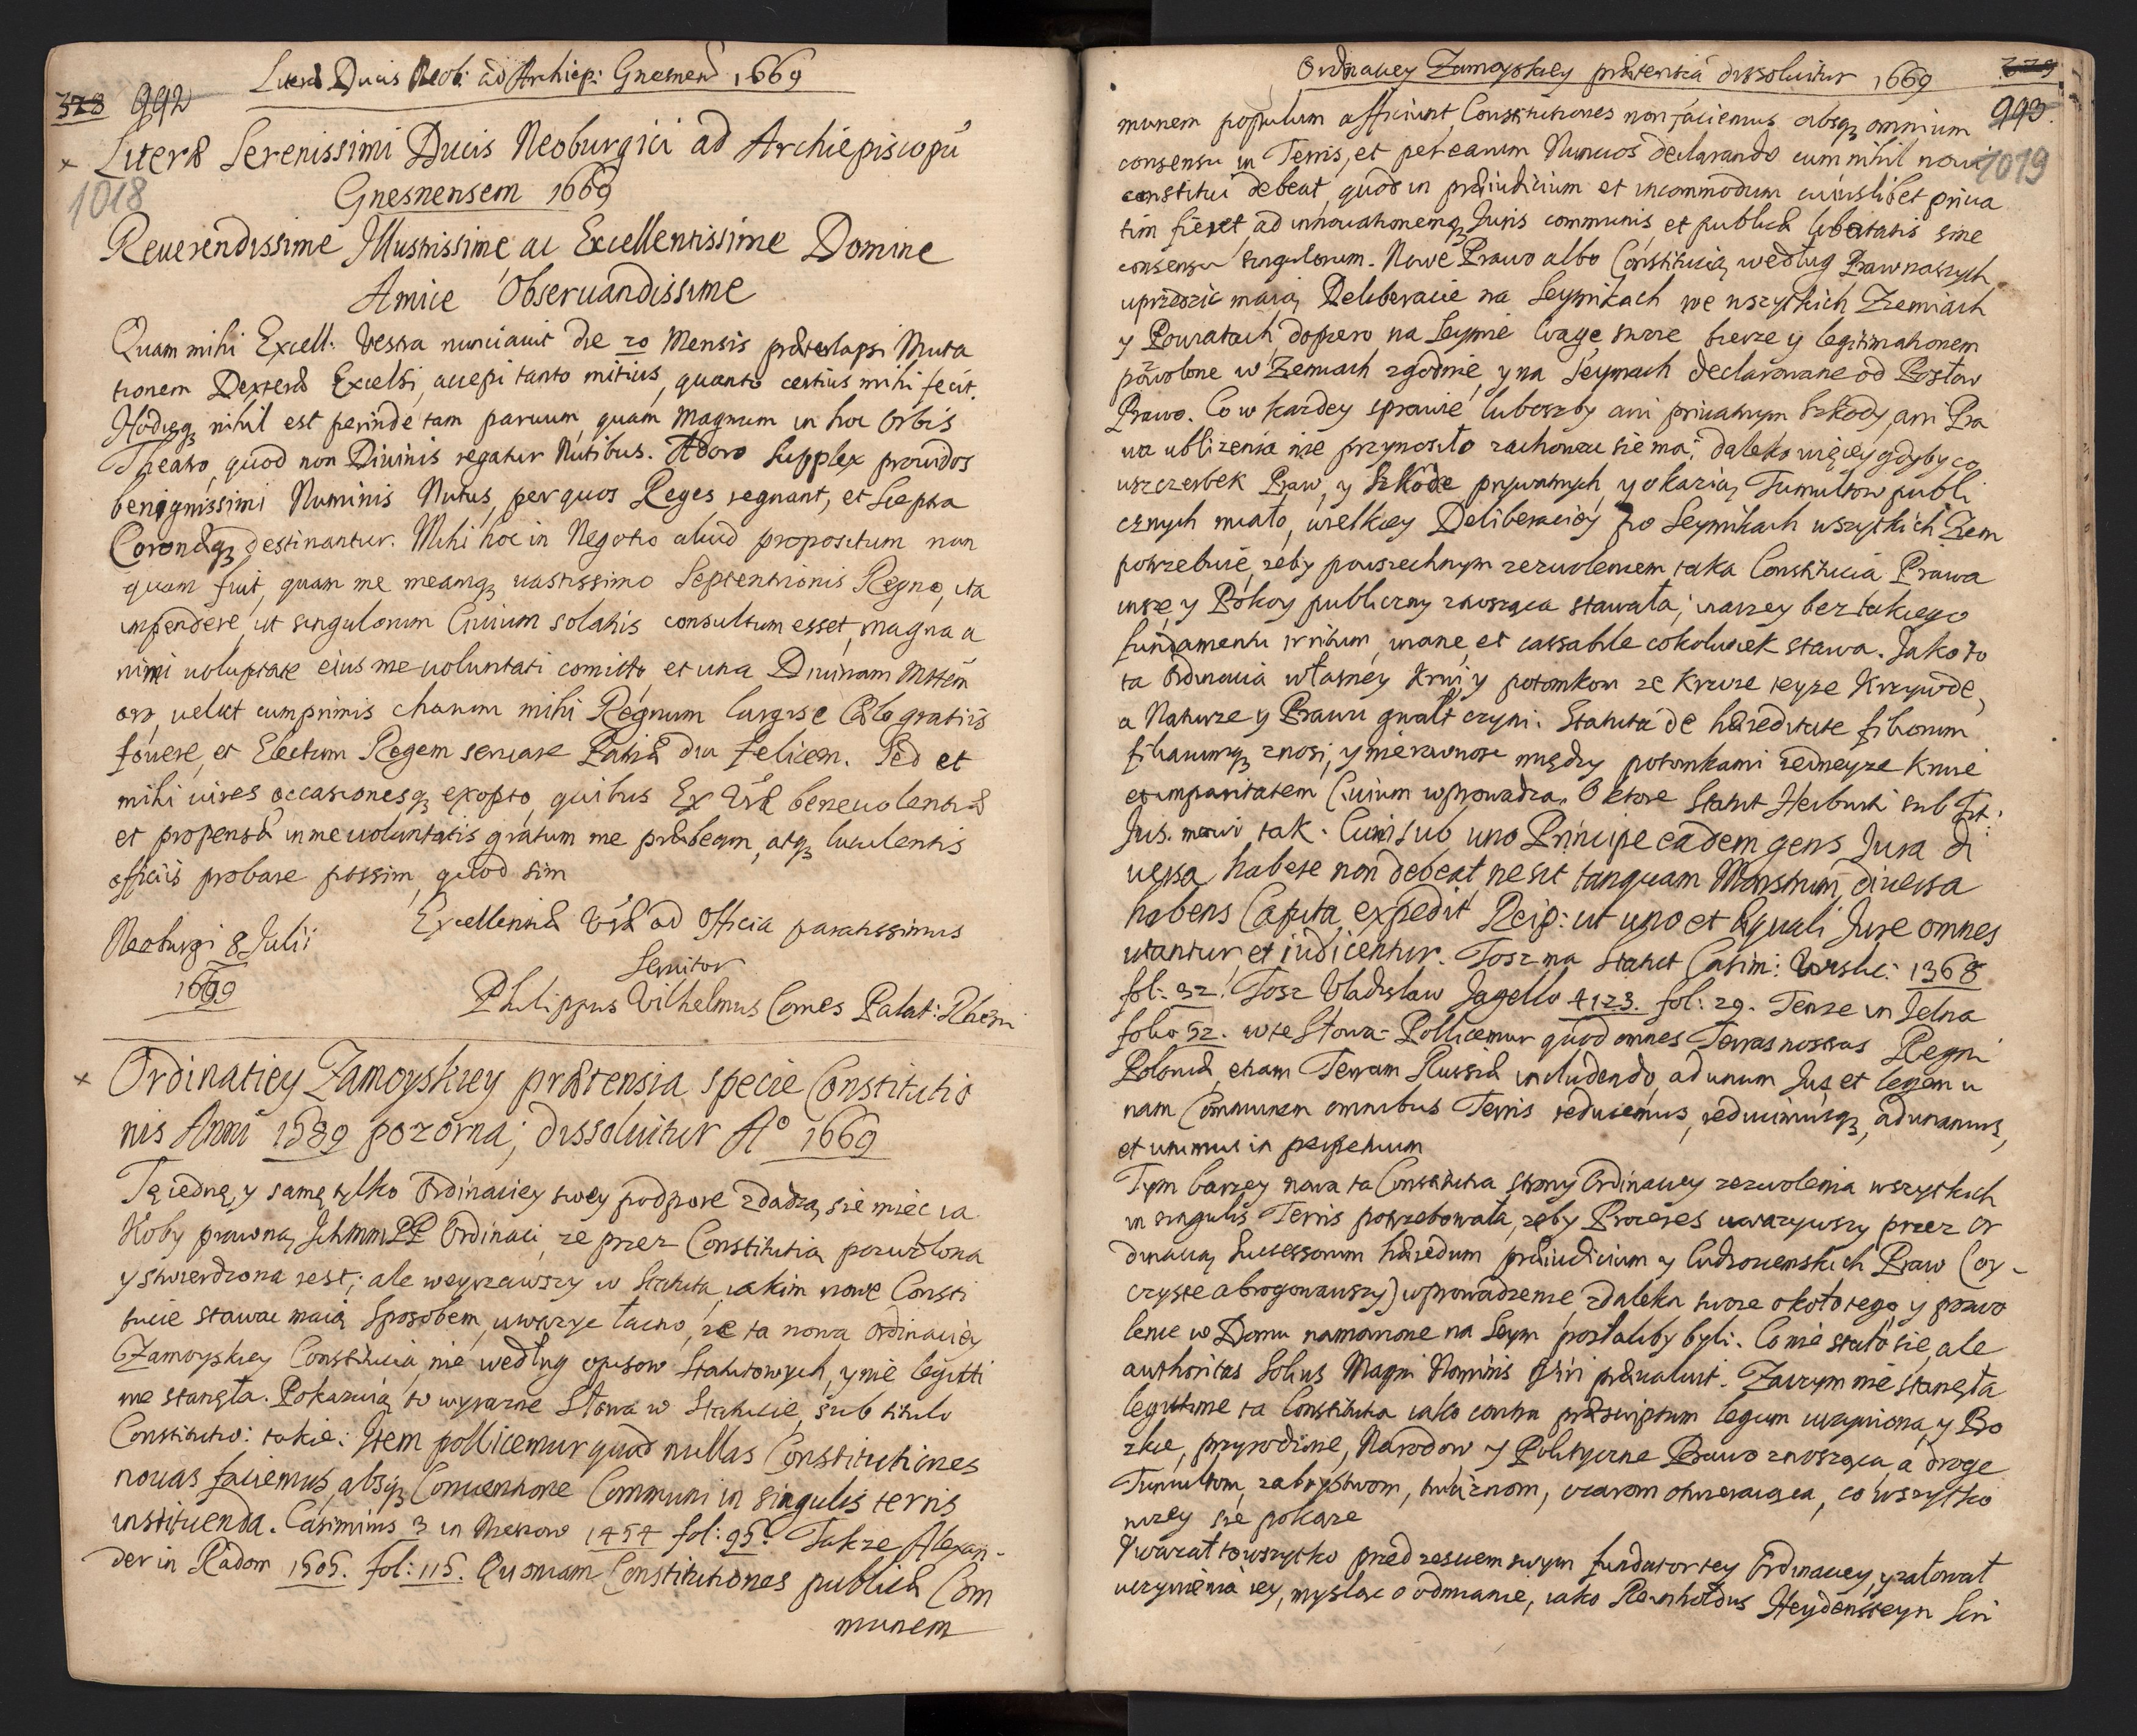 Literæ Ducis Neob: ad Archiep: Gnesnen 1669
378 992
Literæ Serenissimi Ducis Neoburgici ad Archiepiscopũ
1018
Gnesnensem 1669
Reuerendissime Illustrissime ac Excellentissime Domine
Amice Obseruandissime
Quam mihi Excell: Vestra nunciauit die 20 Mensis præterlapsi Muta
tionem Dexteræ Excelsi, accepi tanto mitius, quanto certius mihi fecit.
Nihil est perinde tam paruum, quam magnum in hoc Orbis
Theatro, quod non Diuinis regatur Nutibus. Adoro supplex prouidos
benignissimi Numinis Nutus, per quos Reges regnant, et Sceptra
Coronæq₃ destinantur. Mihi hoc in Negotio aliud propositum nun
quam fuit, quam me meamq₃ uastissimo Septentrionis Regno, ita
impendere, ut singulorum Ciuium solatiis consultum esset, magna a
nimi uoluptate eius me uoluntati comitto et una Diuinam Mstem
oro, uelut cumprimis charum mihi Regnum largis è Cælo gratiis
fouere, et Electum Regem seruare Patriæ diu felicem. Sed et
mihi uires occasionesq₃ exopto, quibus Ex Vræ beneuolentiæ
et propensæ in me uoluntatis gratum me præbeam, atq₃ luculentis
officiis probare possim, quod sim
Excellentiæ Vræ ad Officia paratissimus
Neoburgi 8 Julii
Seruitor
1669
Philippus Vilhelmus Comes Palat: Rheni
Ordinatiey Zamoyskiey prætensia specie Constitutio
nis Anni 1589 pozorna; dissoluitur Aº 1669
Tę iednę, y samę tylko Ordinaciey swey podporę zdadzą się miec ia
koby prawną, Ichmm PP Ordinaci, ze przez Constitutią pozwolona
y stwierdzona iest; ale weyrzawszy w Statuta, iakim nowe Consti
tucie stawac maią sposobem, uwazyc łacno, ze ta nowa Ordinaciey
Zamoyskiey Constitucia, nie według opisow Statutowych, y nie legitti
me stanęła. Pokazuią to wyrazne Słowa w Statucie, sub titulo
Constitutio: takie: Item pollicemur quod nullas Constitutiones
nouas faciemus, absq₃ Conuentione Communi in singulis terris
instituenda. Casimirus 3 in Nieszow 1454 fol: 95. Takze Alexan-
der in Radom 1505. fol: 115. Quoniam Constitutiones publicæ Com
munem
Ordinaciey Zamoyskiey prætensia dissoluitur 1669
379
993.
1019
munem populum afficiunt, Constitutiones non faciemus absq₃ omnium
consensu in Terris, et per earum Nuncios declarando cum nihil noui
constitui debeat, quod in præiudicium et incommodum cuiuslibet priua
tim fieret, ad innouationemq₃ Juris communis et publicæ libertatis sine
consensu singulorum. Nowe Prawo albo Constitucią, według Praw naszych
uprzedzic maią Deliberacie na Seymikach we wszytkich Ziemiach
y Powiatach, dopiero na Seymie wagę swoię bierze y legitimationem
pozwolone w Ziemiach zgodnie, y na Seymach declarowane od Posłow
Prawo. Co w kazdey sprawie luboszby ani priuatnym szkody, ani Pra
wa ublizenia nie przynosiło zachowac się ma; daleko więcey gdyby co
uszczerbek Praw, y szkodę prywatnych, y okazią Tumultow publi
cznych miało, wielkiey Deliberaciey po Seymikach wszytkich Ziem
potrzebuie, zeby powszechnym zezwoleniem taka Constitucia Prawa
insze, y Pokoy publiczny znosząca stawała; inaczey bez takiego
fundamentu irritum, inane, et cassabile cokolwiek stawa. Jako to
ta Ordinacia własney Krwi y potomkom ze Krwie teyze Krzywdę,
a Naturze y Prawu gwałt czyni: Statuta de hæreditate filiorum
filiarumq₃ znosi, y nierownosc między potomkami iedneyze Krwie
et imparitatem Ciuium wprowadza. O ktore Statut Herburti sub Tit:
Jus. mowi tak. Cum sub uno Principe eadem gens Jura di
uersa habere non debeat, ne sit tanquam Monstrum, diuersa
habens Capita, expedit Reip: ut uno et æquali Jure omnes
utantur, et iudicentur. Tosz ma Statut Casim: Vislic: 1368
fol: 32. Tosz Vladislaw Jagello 4123. fol: 29. Tenze in Jelna
folio 32. w te Słowa: Pollicemur quod omnes Terras nostras Regni
Poloniæ, etiam Terram Russiæ includendo, ad unum Jus et legem u
nam Communem omnibus Terris reducemus, reducimusq₃, adunamus,
et unimus in perpetuum
Tym barziey nowa ta Constitutia strony Ordinaciey zezwolenia wszytkich
in singulis Terris potrzebowała, zeby Proceres uwazywszy przez Or
dinacią Successorum hæredum præiudicium y Cudzoziemskich Praw (oy-
czyste abrogowawszy) wprowadzenie, zdaleka swoie około tego, y pozwo
lenie w Domu namowione na Seym posłaliby byli. Co nie stało się, ale
authoritas solius Magni Nominis Viri præualuit. Zaczym nie stanęła
legitime ta Constitutia iako contra præscriptum legum uczyniona, y Bo
zkie, przyrodzone, Narodow y Polityczne Prawo znosząca, a drogę
Tumultom, zaboystwom, truciznom, czarom otwieraiąca, co wszytko
nizey się pokaze
Uwazał to wszytko przed zesciem swym fundator tey Ordinaciey, y załował
uczynienia iey, mysląc o odmianie, iako Reinholdus Heydensteyn Scri